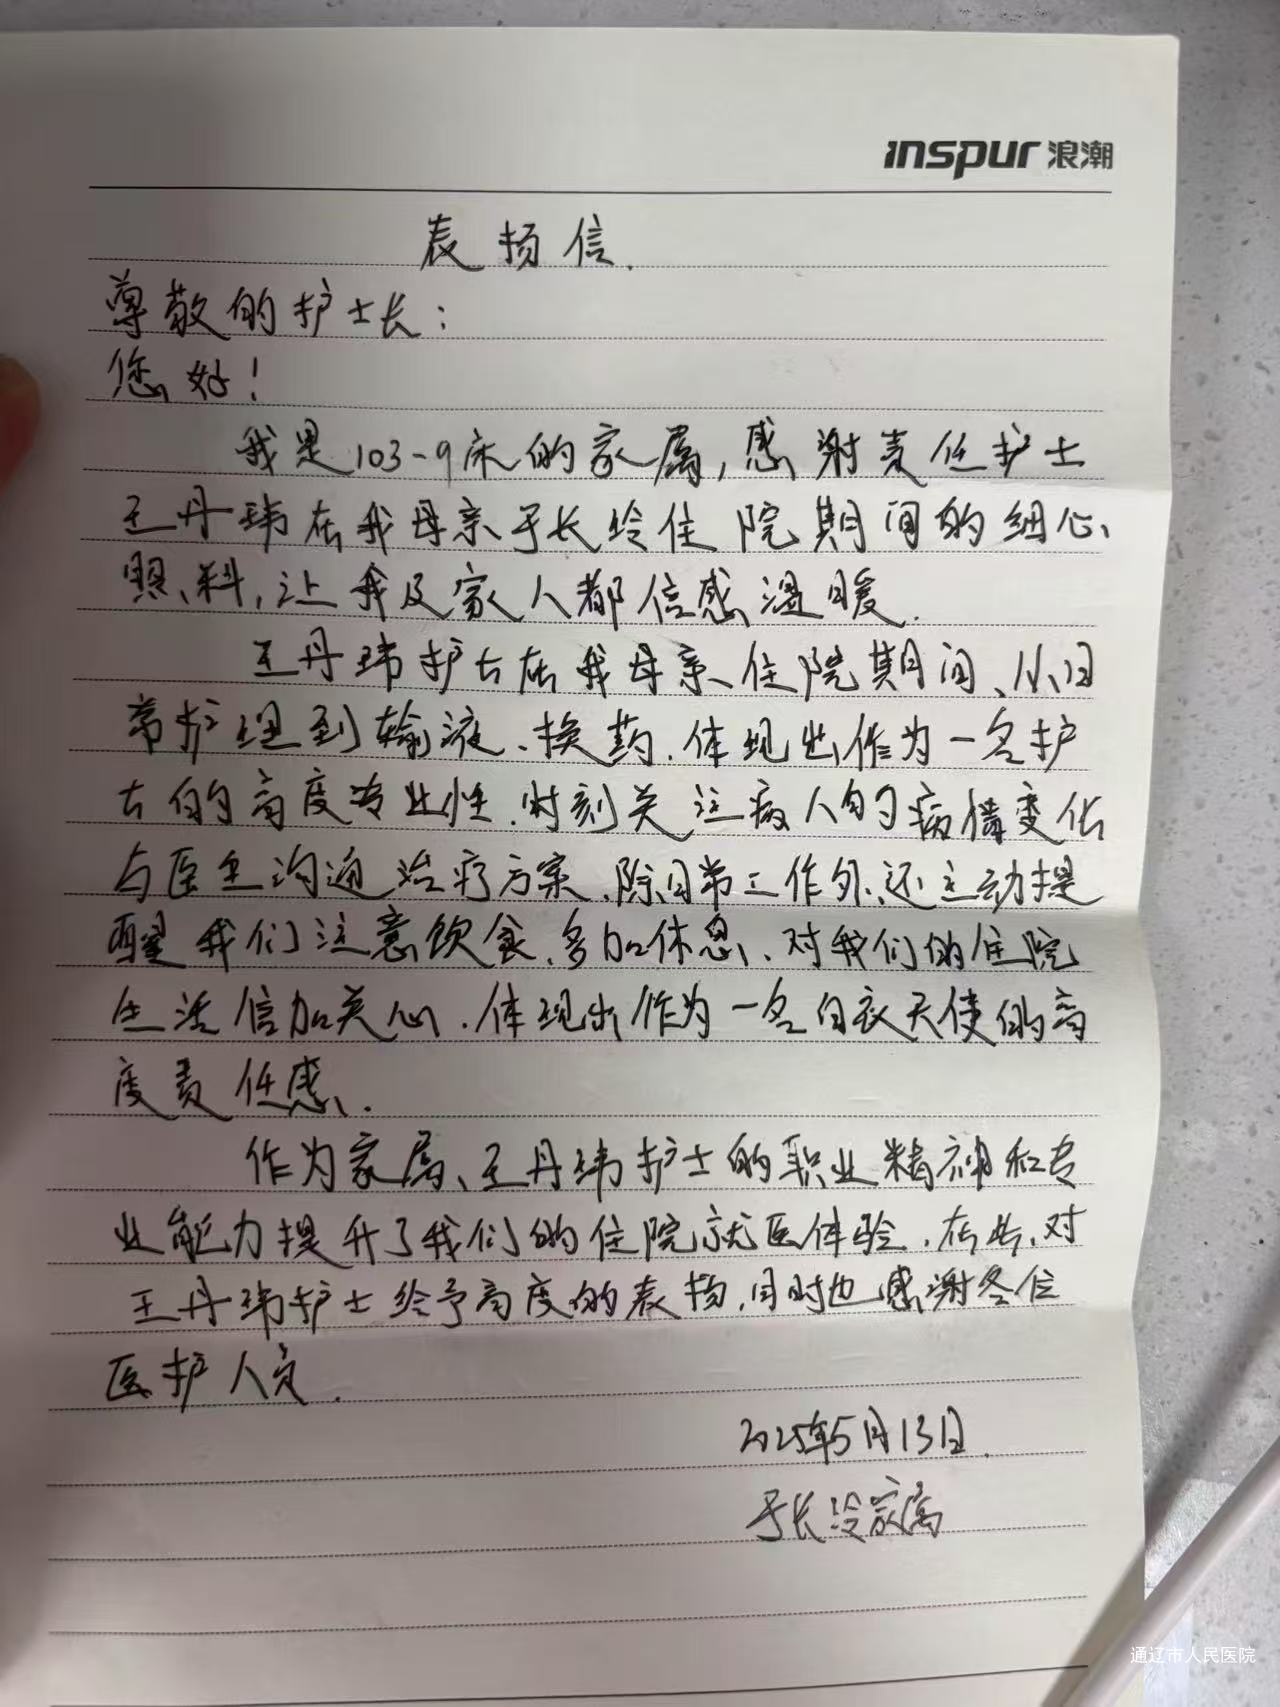 inspur 浪潮
表扬信.
尊敬的护士长:
您好!
我是103-9床的家属,感谢责任护士
王丹玮在我母亲于长玲住院期间的细心
照料,让我及家人都倍感温暖.
王丹玮护士在我母亲住院期间、从日
常护理到输液、换药.体现出作为一名护
士的高度专业性.时刻关注病人的病情变化
与医生沟通治疗方案、除日常工作外、还主动提
醒我们注意饮食、多加休息、对我们的住院
生活倍加关心.体现出作为一名白衣天使的高
度责任感.
作为家属、王丹玮护士的职业精神和专
业能力提升了我们的住院就医体验.在此、对
王丹玮护士给予高度的表扬.同时也感谢各位
医护人员.
2025年5月13日.
于长 家属
通辽市人民医院